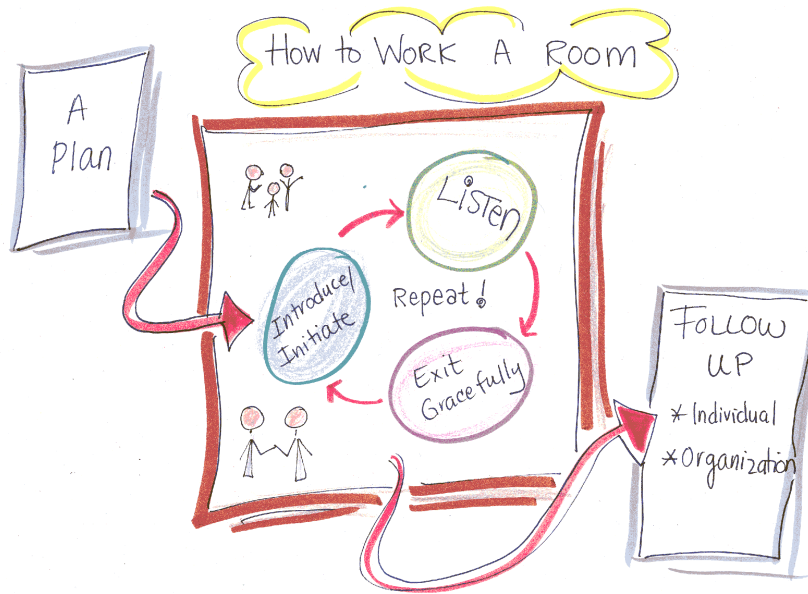 How to Work A Room
A
Plan
Listen
Introduce/
Initiate
Repeat!
Exit
Gracefully
Follow
up
* Individual
* Organization